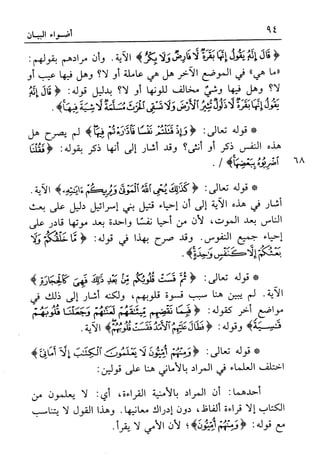 ٩٤ أضواء البيان
﴿قَالَ إِنَّهُ يَقُولُ إِنَّهَا بَقَرَةٌ لَّا فَارِضٌ وَلَا بِكْرٌ﴾ الآية. وأن مرادهم بقولهم:
«ما هي» في الموضع الآخر هل هي عاملة أو لا؟ وهل فيها عيب أو
لا؟ وهل فيها وشي مخالف للونها أو لا؟ بدليل قوله: ﴿قَالَ إِنَّهُ
يَقُولُ إِنَّهَا بَقَرَةٌ لَّا ذَلُولٌ تُثِيرُ الْأَرْضَ وَلَا تَسْقِي الْحَرْثَ مُسَلَّمَةٌ لَّا شِيَةَ فِيهَا﴾.
* قوله تعالى: ﴿وَإِذْ قَتَلْتُمْ نَفْسًا فَادَّارَأْتُمْ فِيهَا﴾ لم يصرح هل
هذه النفس ذكر أو أنثى؟ وقد أشار إلى أنها ذكر بقوله: ﴿فَقُلْنَا
٦٨ اضْرِبُوهُ بِبَعْضِهَا﴾ /.
* قوله تعالى: ﴿كَذَٰلِكَ يُحْيِي اللَّهُ الْمَوْتَىٰ وَيُرِيكُمْ آيَاتِهِ﴾ الآية.
أشار في هذه الآية إلى أن إحياء قتيل بني إسرائيل دليل على بعث
الناس بعد الموت، لأن من أحيا نفسًا واحدة بعد موتها قادر على
إحياء جميع النفوس. وقد صرح بهذا في قوله: ﴿مَّا خَلْقُكُمْ وَلَا
بَعْثُكُمْ إِلَّا كَنَفْسٍ وَاحِدَةٍ﴾.
* قوله تعالى: ﴿ثُمَّ قَسَتْ قُلُوبُكُم مِّن بَعْدِ ذَٰلِكَ فَهِيَ كَالْحِجَارَةِ﴾
الآية. لم يبين هنا سبب قسوة قلوبهم، ولكنه أشار إلى ذلك في
مواضع أخر كقوله: ﴿فَبِمَا نَقْضِهِم مِّيثَاقَهُمْ لَعَنَّاهُمْ وَجَعَلْنَا قُلُوبَهُمْ
قَاسِيَةً﴾ وقوله: ﴿فَطَالَ عَلَيْهِمُ الْأَمَدُ فَقَسَتْ قُلُوبُهُمْ﴾ الآية.
* قوله تعالى: ﴿وَمِنْهُمْ أُمِّيُّونَ لَا يَعْلَمُونَ الْكِتَابَ إِلَّا أَمَانِيَّ﴾
اختلف العلماء في المراد بالأماني هنا على قولين:
أحدهما: أن المراد بالأمنية القراءة، أي: لا يعلمون من
الكتاب إلا قراءة ألفاظ، دون إدراك معانيها. وهذا القول لا يتناسب
مع قوله: ﴿وَمِنْهُمْ أُمِّيُّونَ﴾؛ لأن الأمي لا يقرأ.